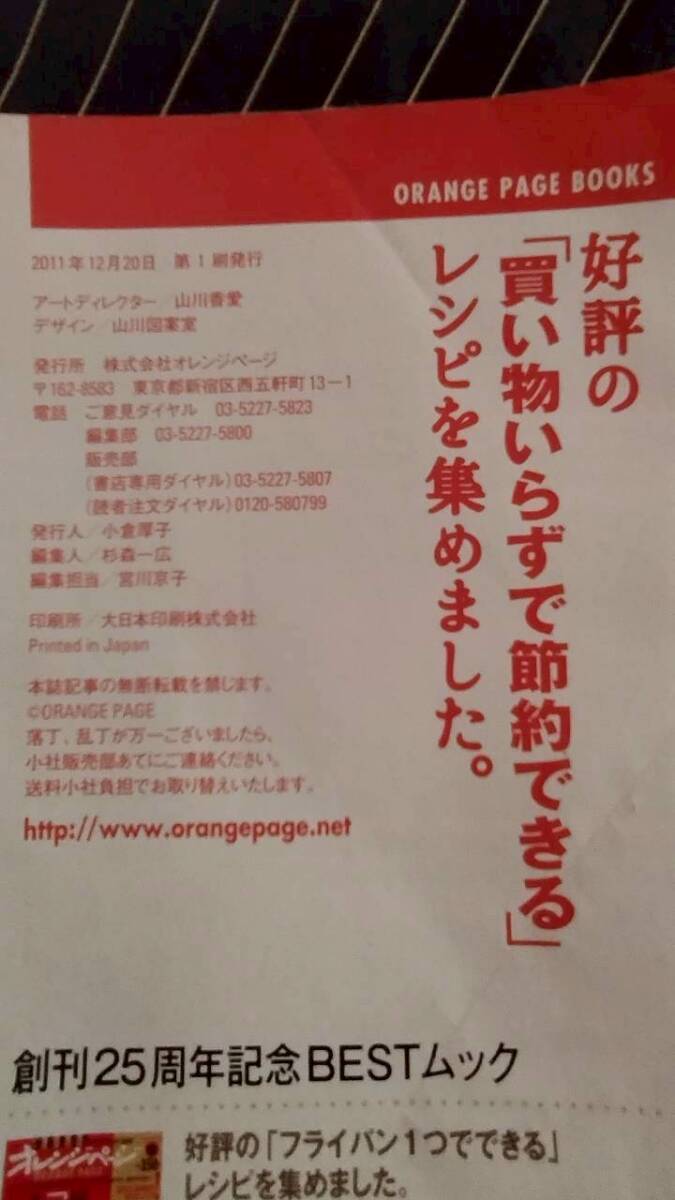 ORANGE PAGE BOOKS
好評の
「買い物いらずで節約できる」
レシピを集めました。
2011年12月20日　第1刷発行
アートディレクター／山川香愛
デザイン／山川図案室
発行所　株式会社オレンジページ
〒162-8583　東京都新宿区西五軒町13−1
電話　ご意見ダイヤル　03-5227-5823
編集部　03-5227-5800
販売部
(書店専用ダイヤル)03-5227-5807
(読者注文ダイヤル)0120-580799
発行人／小倉厚子
編集人／杉森一広
編集担当／宮川京子
印刷所／大日本印刷株式会社
Printed in Japan
本誌記事の無断転載を禁じます。
©ORANGE PAGE
落丁、乱丁が万一ございましたら、
小社販売部あてにご連絡ください。
送料小社負担でお取り替えいたします。
http://www.orangepage.net
創刊25周年記念BESTムック
オレンジページ
好評の「フライパン1つでできる」
レシピを集めました。